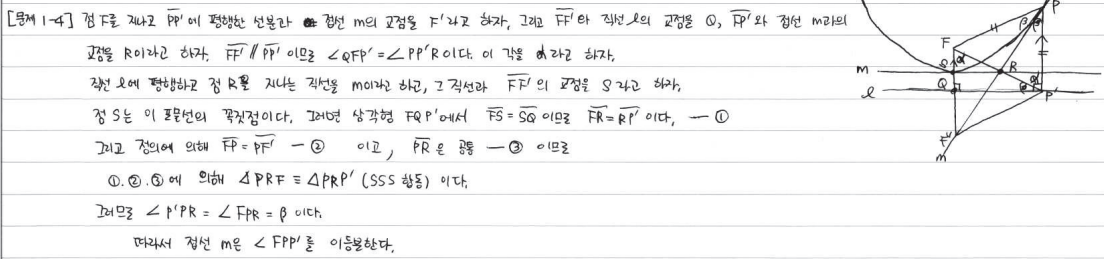 [문제 1-4] 점 F를 지나고 PP'에 평행한 선분과 접선 m의 교점을 F'라고 하자, 그리고 FF'와 직선 l의 교점을 Q, FP'와 접선 m과의
교점을 R이라고 하자. FF' // PP' 이므로 ∠QFP' = ∠PP'R이다. 이 각을 α라고 하자.
직선 l에 평행하고 점 R을 지나는 직선을 m이라고 하고, 그 직선과 FF'의 교점을 S라고 하자.
점 S는 이 포물선의 꼭짓점이다. 그러면 삼각형 FQP'에서 FS = SQ 이므로 FR = RP' 이다. — ①
그리고 정의에 의해 FP = PF' — ② 이고, PR은 공통 — ③ 이므로
①.②.③에 의해 △PRF ≡ △PRP' (SSS 합동) 이다.
그러므로 ∠P'PR = ∠FPR = β 이다.
따라서 접선 m은 ∠FPP'를 이등분한다.
P
β
F
α
S
R
m
Q
l
P'
F'
m